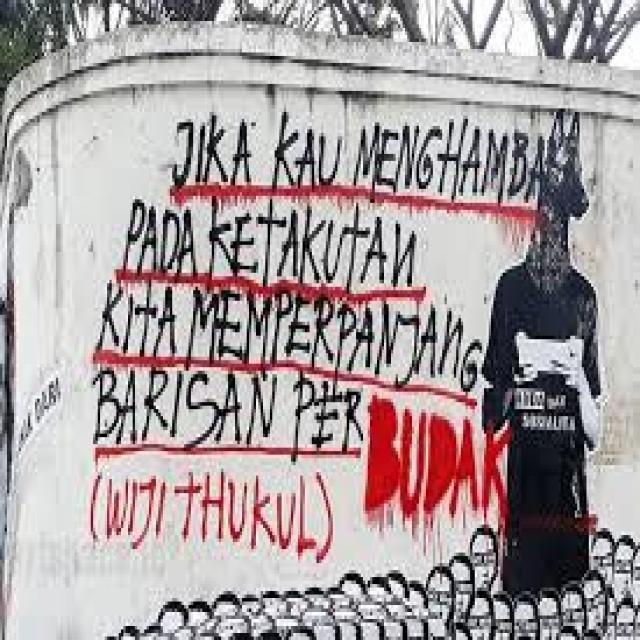 JIKA KAU MENGHAMBA
PADA KETAKUTAN
KITA MEMPERPANJANG
BARISAN PERBUDAK
(WIJI THUKUL)